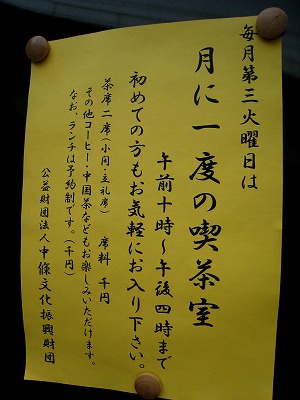 毎月第三火曜日は
月に一度の喫茶室
午前十時～午後四時まで
初めての方もお気軽にお入り下さい。
茶席二席(小間・立礼席) 席料 千円
その他コーヒー・中国茶などもお楽しみいただけます。
なお、ランチは予約制です。(千円)
公益財団法人中條文化振興財団